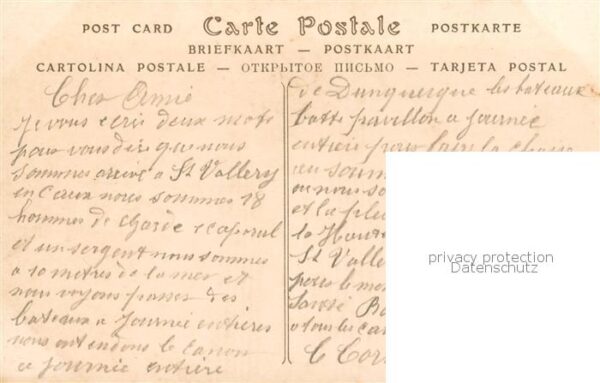 POST CARD Carte Postale POSTKARTE
BRIEFKAART — POSTKAART
CARTOLINA POSTALE — ОТКРЫТОЕ ПИСЬМО — TARJETA POSTAL
Cher Amie
je vous ecris deux mots
pour vous dire que nous
sommes arrive a St Vallery
en Caux nous sommes 18
hommes de et caporal
et un sergent nous sommes
a 10 metres de la mer et
nous voyons passer des
bateaux a journee entières
nous entendons le canon
a journee entière
de Dunquerque les bateaux
batte pavillon a journee
entière pour faire la chasse
au
ou nous
et la
le
St Valle
pour le
a tous les
privacy protection
Datenschutz